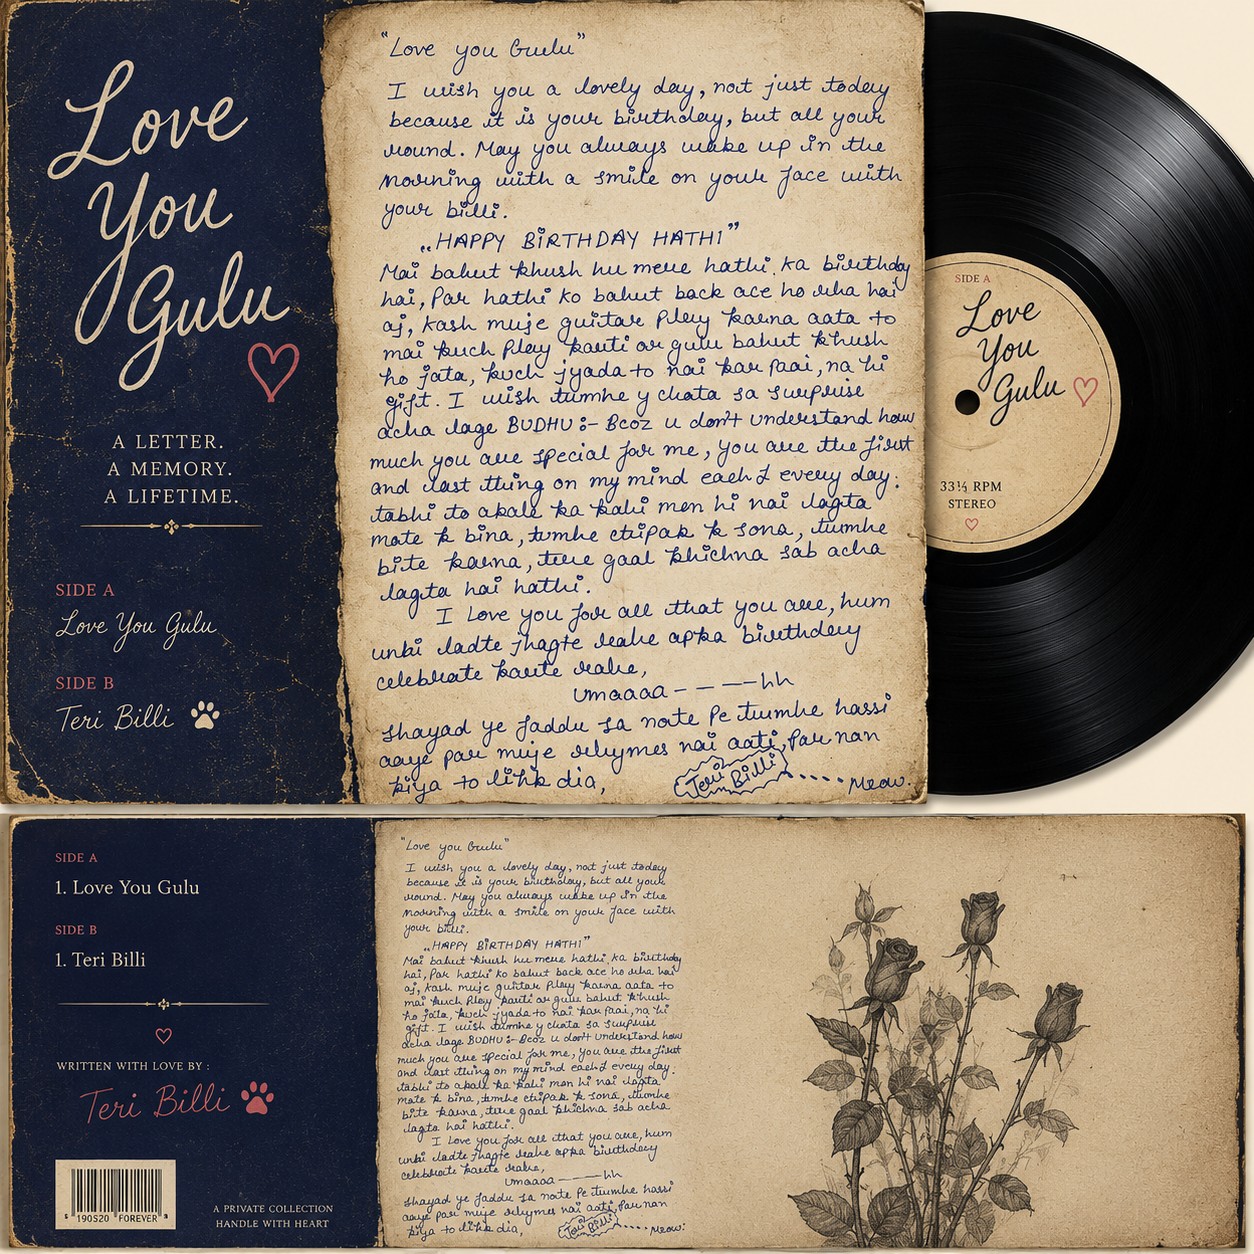 Love
You
Gulu
A LETTER.
A MEMORY.
A LIFETIME.
SIDE A
Love You Gulu
SIDE B
Teri Billi
"Love you Gulu"
I wish you a lovely day, not just today
because it is your birthday, but all your
round. May you always wake up in the
morning with a smile on your face with
your billi.
"HAPPY BIRTHDAY HATHI"
Mai bahut khush hu mere hathi ka birthday
hai, Par hathi ko bahut back ace ho rha hai
aj, kash muje guitar Pley karna aata to
mai kuch Pley karti or gulu bahut khush
ho jata, kuch jyada to nai kar paai, na hi
gift. I wish tumhe y chota sa surprise
acha lage BUDHU :- Bcoz u don't understand how
much you are special for me, you are the first
and last thing on my mind each & every day.
tabhi to akale ka kahi man hi nai lagta
mote k bina, tumhe chipak k sona, tumhe
bite karna, tere gaal khichna sab acha
lagta hai hathi.
I Love you for all that you are, hum
unhi ladte jhagte rahe apka birthday
celebrate karte rahe,
Umaaaa - - - - hh
Shayad ye faddu sa note Pe tumhe hassi
aaye par muje rhymes nai aati, Par nan
kiya to likh dia,
Teri Billi ...... Meow.
SIDE A
Love
You
Gulu
33⅓ RPM
STEREO
SIDE A
1. Love You Gulu
SIDE B
1. Teri Billi
WRITTEN WITH LOVE BY :
Teri Billi
190520 FOREVER
A PRIVATE COLLECTION
HANDLE WITH HEART
"Love you Gulu"
I wish you a lovely day, not just today
because it is your birthday, but all your
round. May you always wake up in the
morning with a smile on your face with
your billi.
"HAPPY BIRTHDAY HATHI"
Mai bahut khush hu mere hathi ka birthday
hai, Par hathi ko bahut back ace ho rha hai
aj, kash muje guitar Pley karna aata to
mai kuch Pley karti or gulu bahut khush
ho jata, kuch jyada to nai kar paai, na hi
gift. I wish tumhe y chota sa surprise
acha lage BUDHU :- Bcoz u don't understand how
much you are special for me, you are the first
and last thing on my mind each & every day.
tabhi to akale ka kahi man hi nai lagta
mote k bina, tumhe chipak k sona, tumhe
bite karna, tere gaal khichna sab acha
lagta hai hathi.
I Love you for all that you are, hum
unhi ladte jhagte rahe apka birthday
celebrate karte rahe,
Umaaaa - - - - hh
Shayad ye faddu sa note Pe tumhe hassi
aaye par muje rhymes nai aati, Par nan
kiya to likh dia,
Teri Billi ...... Meow.